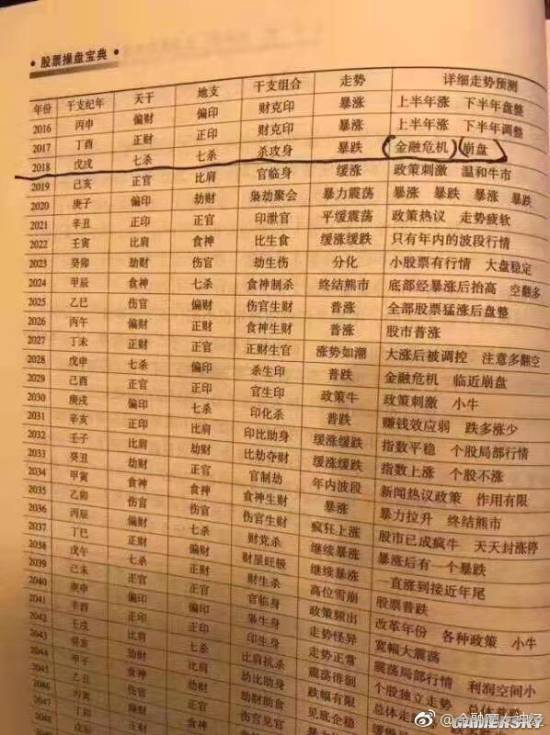 股票操盘宝典
年份 干支纪年 天干 地支 干支组合 走势 详细走势预测
2016 丙申 偏财 偏印 财克印 暴涨 上半年涨 下半年盘整
2017 丁酉 正财 正印 财克印 暴涨 上半年涨 下半年调整
2018 戊戌 七杀 七杀 杀攻身 暴跌 金融危机 崩盘
2019 己亥 正官 比肩 官临身 缓涨 政策刺激 温和牛市
2020 庚子 偏印 劫财 枭劫聚会 暴力震荡 暴涨 暴跌 暴涨 暴跌
2021 辛丑 正印 正官 印泄官 平缓震荡 政策热议 走势疲软
2022 壬寅 比肩 食神 比生食 缓涨缓跌 只有年内的波段行情
2023 癸卯 劫财 伤官 劫生伤 分化 小股票有行情 大盘稳定
2024 甲辰 食神 七杀 食神制杀 终结熊市 底部经暴涨后抬高 空翻多
2025 乙巳 伤官 偏财 伤官生财 普涨 全部股票猛涨后盘整
2026 丙午 偏财 正财 食神生财 普涨 股市普涨
2027 丁未 正财 正官 正财生官 涨势如潮 大涨后被调控 注意多翻空
2028 戊申 七杀 偏印 杀生印 普跌 金融危机 临近崩盘
2029 己酉 正官 正印 官生印 政策牛 政策刺激 小牛
2030 庚戌 偏印 七杀 印化杀 普跌 赚钱效应弱 跌多涨少
2031 辛亥 正印 比肩 印比助身 缓涨缓跌 指数平稳 个股局部行情
2032 壬子 比肩 劫财 比劫夺财 缓涨缓跌 指数上涨 个股不涨
2033 癸丑 劫财 正官 官制劫 年内波段 新闻热议政策 作用有限
2034 甲寅 食神 食神 食神生财 暴涨 暴力拉升 终结熊市
2035 乙卯 伤官 伤官 伤官生财 疯狂上涨 股市已成疯牛 天天封涨停
2036 丙辰 偏财 七杀 财党杀 继续暴涨 暴涨后有一个暴跌
2037 丁巳 正财 偏财 财星旺极 继续暴涨 一直涨到接近年尾
2038 戊午 七杀 正财 财生杀 高位雪崩 股票普跌
己未 正官 正官 官临身 政策频出 改革年份 各种政策 小牛
2040 庚申 偏印 偏印 枭生身 走势怪异 宽幅大震荡
2041 辛酉 正印 正印 印生身 走势正常 震荡局部行情 利润空间小
2042 壬戌 比肩 七杀 比肩抗杀 震荡徘徊 个股独立走势
2043 癸亥 劫财 比肩 跌幅有限
2044 甲子 食神 劫财 见底企稳
2045 乙丑
2046 丙寅
丁卯
戊辰
GAMERSKY